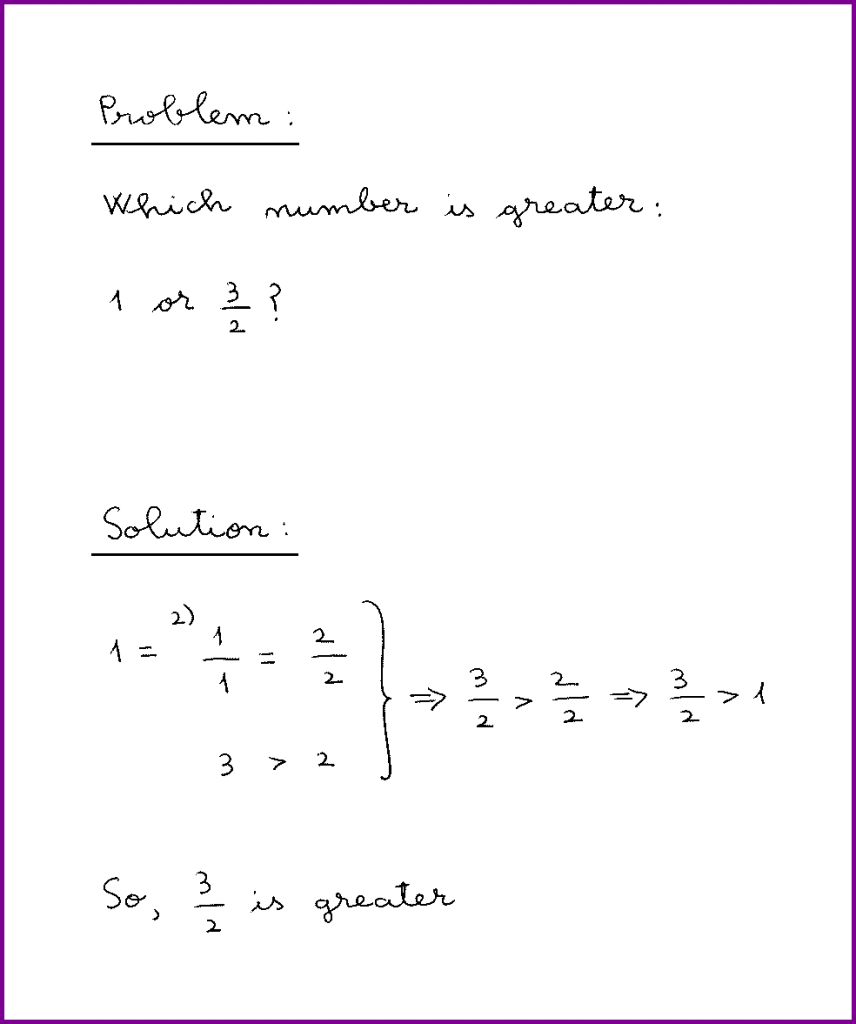 Problem:
Which number is greater:
1 or 3/2 ?
Solution:
1 = 2) 1/1 = 2/2
3 > 2 } ⇒ 3/2 > 2/2 ⇒ 3/2 > 1
So, 3/2 is greater